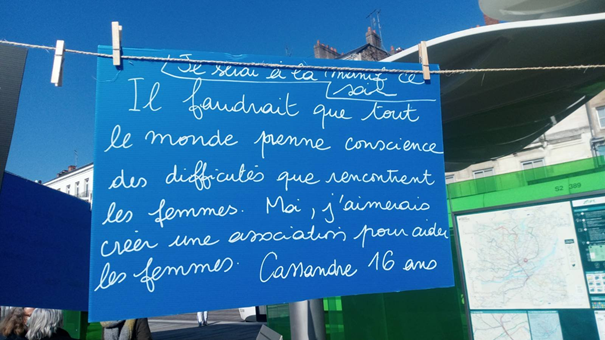 Je serai à la manif ce
soir
Il faudrait que tout
le monde prenne conscience
des difficultés que rencontrent
les femmes. Moi, j'aimerais
créer une association pour aider
les femmes. Cassandre 16 ans